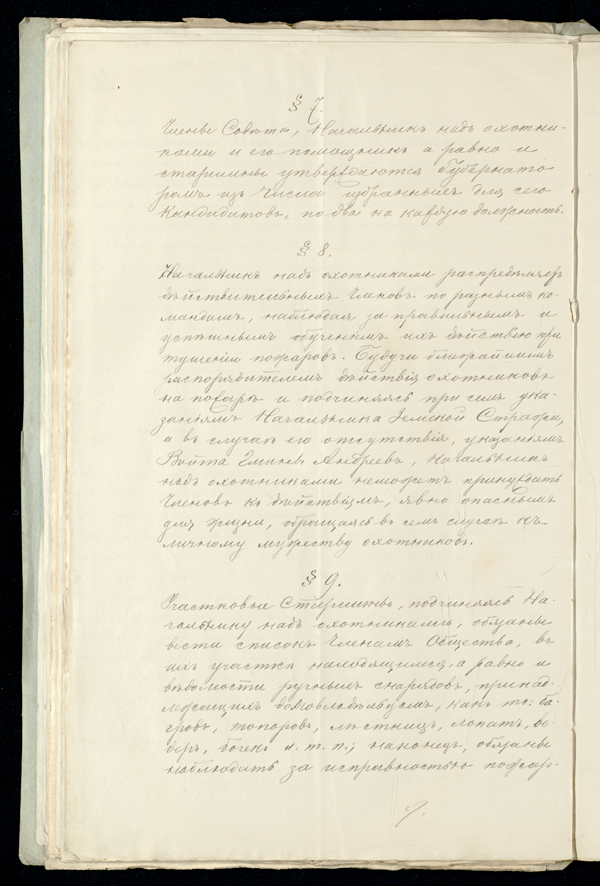 § 7.
Члены Совѣта, Начальникъ надъ охотни-
ками и его помощникъ а равно и
старшины утверждаются Губернато
ромъ изъ числа избранныхъ для сего
кандидатовъ, по два на каждую должность.
§ 8.
Начальникъ надъ охотниками распредѣляетъ
дѣйствительныхъ Членовъ по разнымъ ко-
мандамъ, наблюдая за правильнымъ и
успѣшнымъ обученіемъ ихъ дѣйствію при
тушеніи пожаровъ. Будучи ближайшимъ
распорядителемъ дѣйствія охотниковъ
на пожарѣ и подчиняясь при семъ ука-
заніямъ Начальника Земской Стражи,
а въ случаѣ его отсутствія, указаніямъ
Войта Гмины Андреевъ, Начальникъ
надъ охотниками неможетъ принуждать
Членовъ къ дѣйствіямъ, явно опаснымъ
для жизни, обращаясь въ семъ случаѣ къ
личному мужеству охотниковъ.
§ 9.
Участковые Старшины, подчиняясь На-
чальнику надъ охотниками, обязаны
вести списокъ Членамъ Общества, въ
ихъ участкѣ находящимся, а равно и
вѣдомости ручныхъ снарядовъ, принад-
лежащихъ домовладѣльцамъ, какъ то: ба-
гровъ, топоровъ, лѣстницъ, лопатъ, ве-
деръ, бочекъ и. т. п.; наконецъ, обязаны
наблюдать за исправностью пожар-